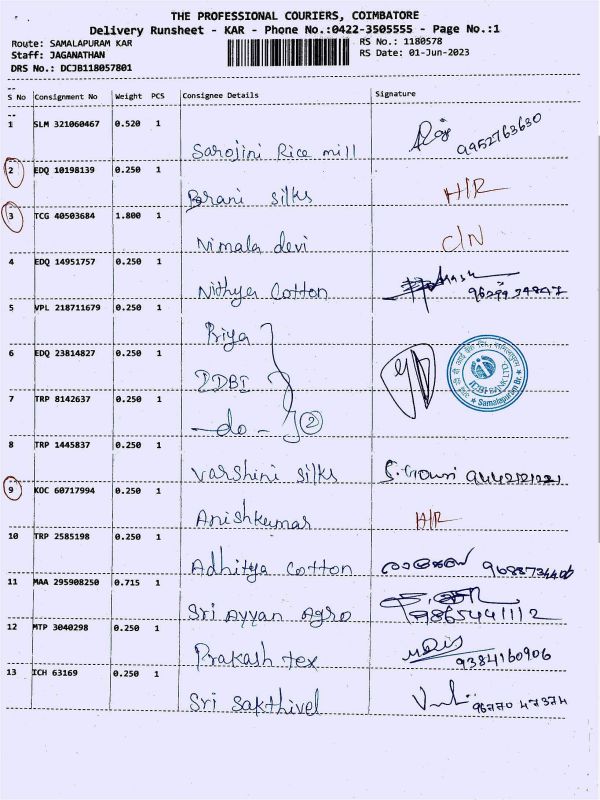 THE PROFESSIONAL COURIERS, COIMBATORE
Delivery Runsheet - KAR - Phone No.:0422-3505555 - Page No.:1
Route: SAMALAPURAM KAR RS No.: 1180578
Staff: JAGANATHAN RS Date: 01-Jun-2023
DRS No.: DCJB118057801
S No Consignment No Weight PCS Consignee Details Signature
1 SLM 321060467 0.520 1
Sarojini Rice mill 9952763630
2 EDQ 10198139 0.250 1
Barani silks H/R
3 TCG 40503684 1.800 1
Nimala devi C/N
4 EDQ 14951757 0.250 1
Nithya Cotton
5 VPL 218711679 0.250 1
Priya
6 EDQ 23814827 0.250 1
IDBI
IDBI BANK LTD.
Samalapuram Br.
7 TRP 8142637 0.250 1
-do- 2
8 TRP 1445837 0.250 1
Varshini silks S. Gowri
9 KOC 60717994 0.250 1
Anishkumar H/R
10 TRP 2585198 0.250 1
Adhitya Cotton
11 MAA 295908250 0.715 1
Sri Ayyan Agro 9865441112
12 MTP 3040298 0.250 1
Prakash tex 9384160906
13 ICH 63169 0.250 1
Sri Sakthivel 96770 47374